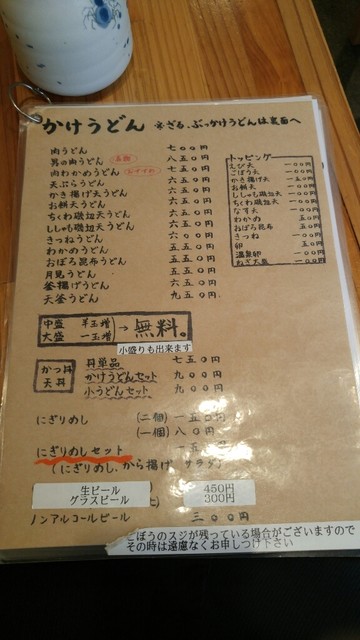 かけうどん ※ざる、ぶっかけうどんは裏面へ
肉うどん 七〇〇円
男の肉うどん 八五〇円
肉わかめうどん おすすめ 七五〇円
天ぷらうどん 六五〇円
かき揚げ天うどん 六五〇円
お餅天うどん 六五〇円
ちくわ磯辺天うどん 六五〇円
ししゃも磯辺天うどん 六五〇円
きつねうどん 六〇〇円
わかめうどん 五五〇円
おぼろ昆布うどん 五五〇円
月見うどん 五五〇円
釜揚げうどん 六五〇円
天釜うどん 九五〇円
トッピング
えび天 一〇〇円
ごぼう天 一〇〇円
かき揚げ天 一五〇円
お餅天 一〇〇円
ししゃも磯辺天 一〇〇円
ちくわ磯辺天 一〇〇円
なす天 一〇〇円
わかめ 五〇円
おぼろ昆布 五〇円
きつね 一〇〇円
卵 五〇円
温泉卵 一〇〇円
ねぎ大盛 一〇〇円
中盛 半玉増
大盛 一玉増 → 無料。
小盛りも出来ます
かつ丼
天丼
丼単品 七五〇円
かけうどんセット 九〇〇円
小うどんセット 九〇〇円
にぎりめし (二個) 一五〇円
(一個) 八〇円
にぎりめしセット
(にぎりめし、から揚げ サラダ)
生ビール 450円
グラスビール 300円
ノンアルコールビール 三〇〇円
ごぼうのスジが残っている場合がございますので
その時は遠慮なくお申しつけ下さい